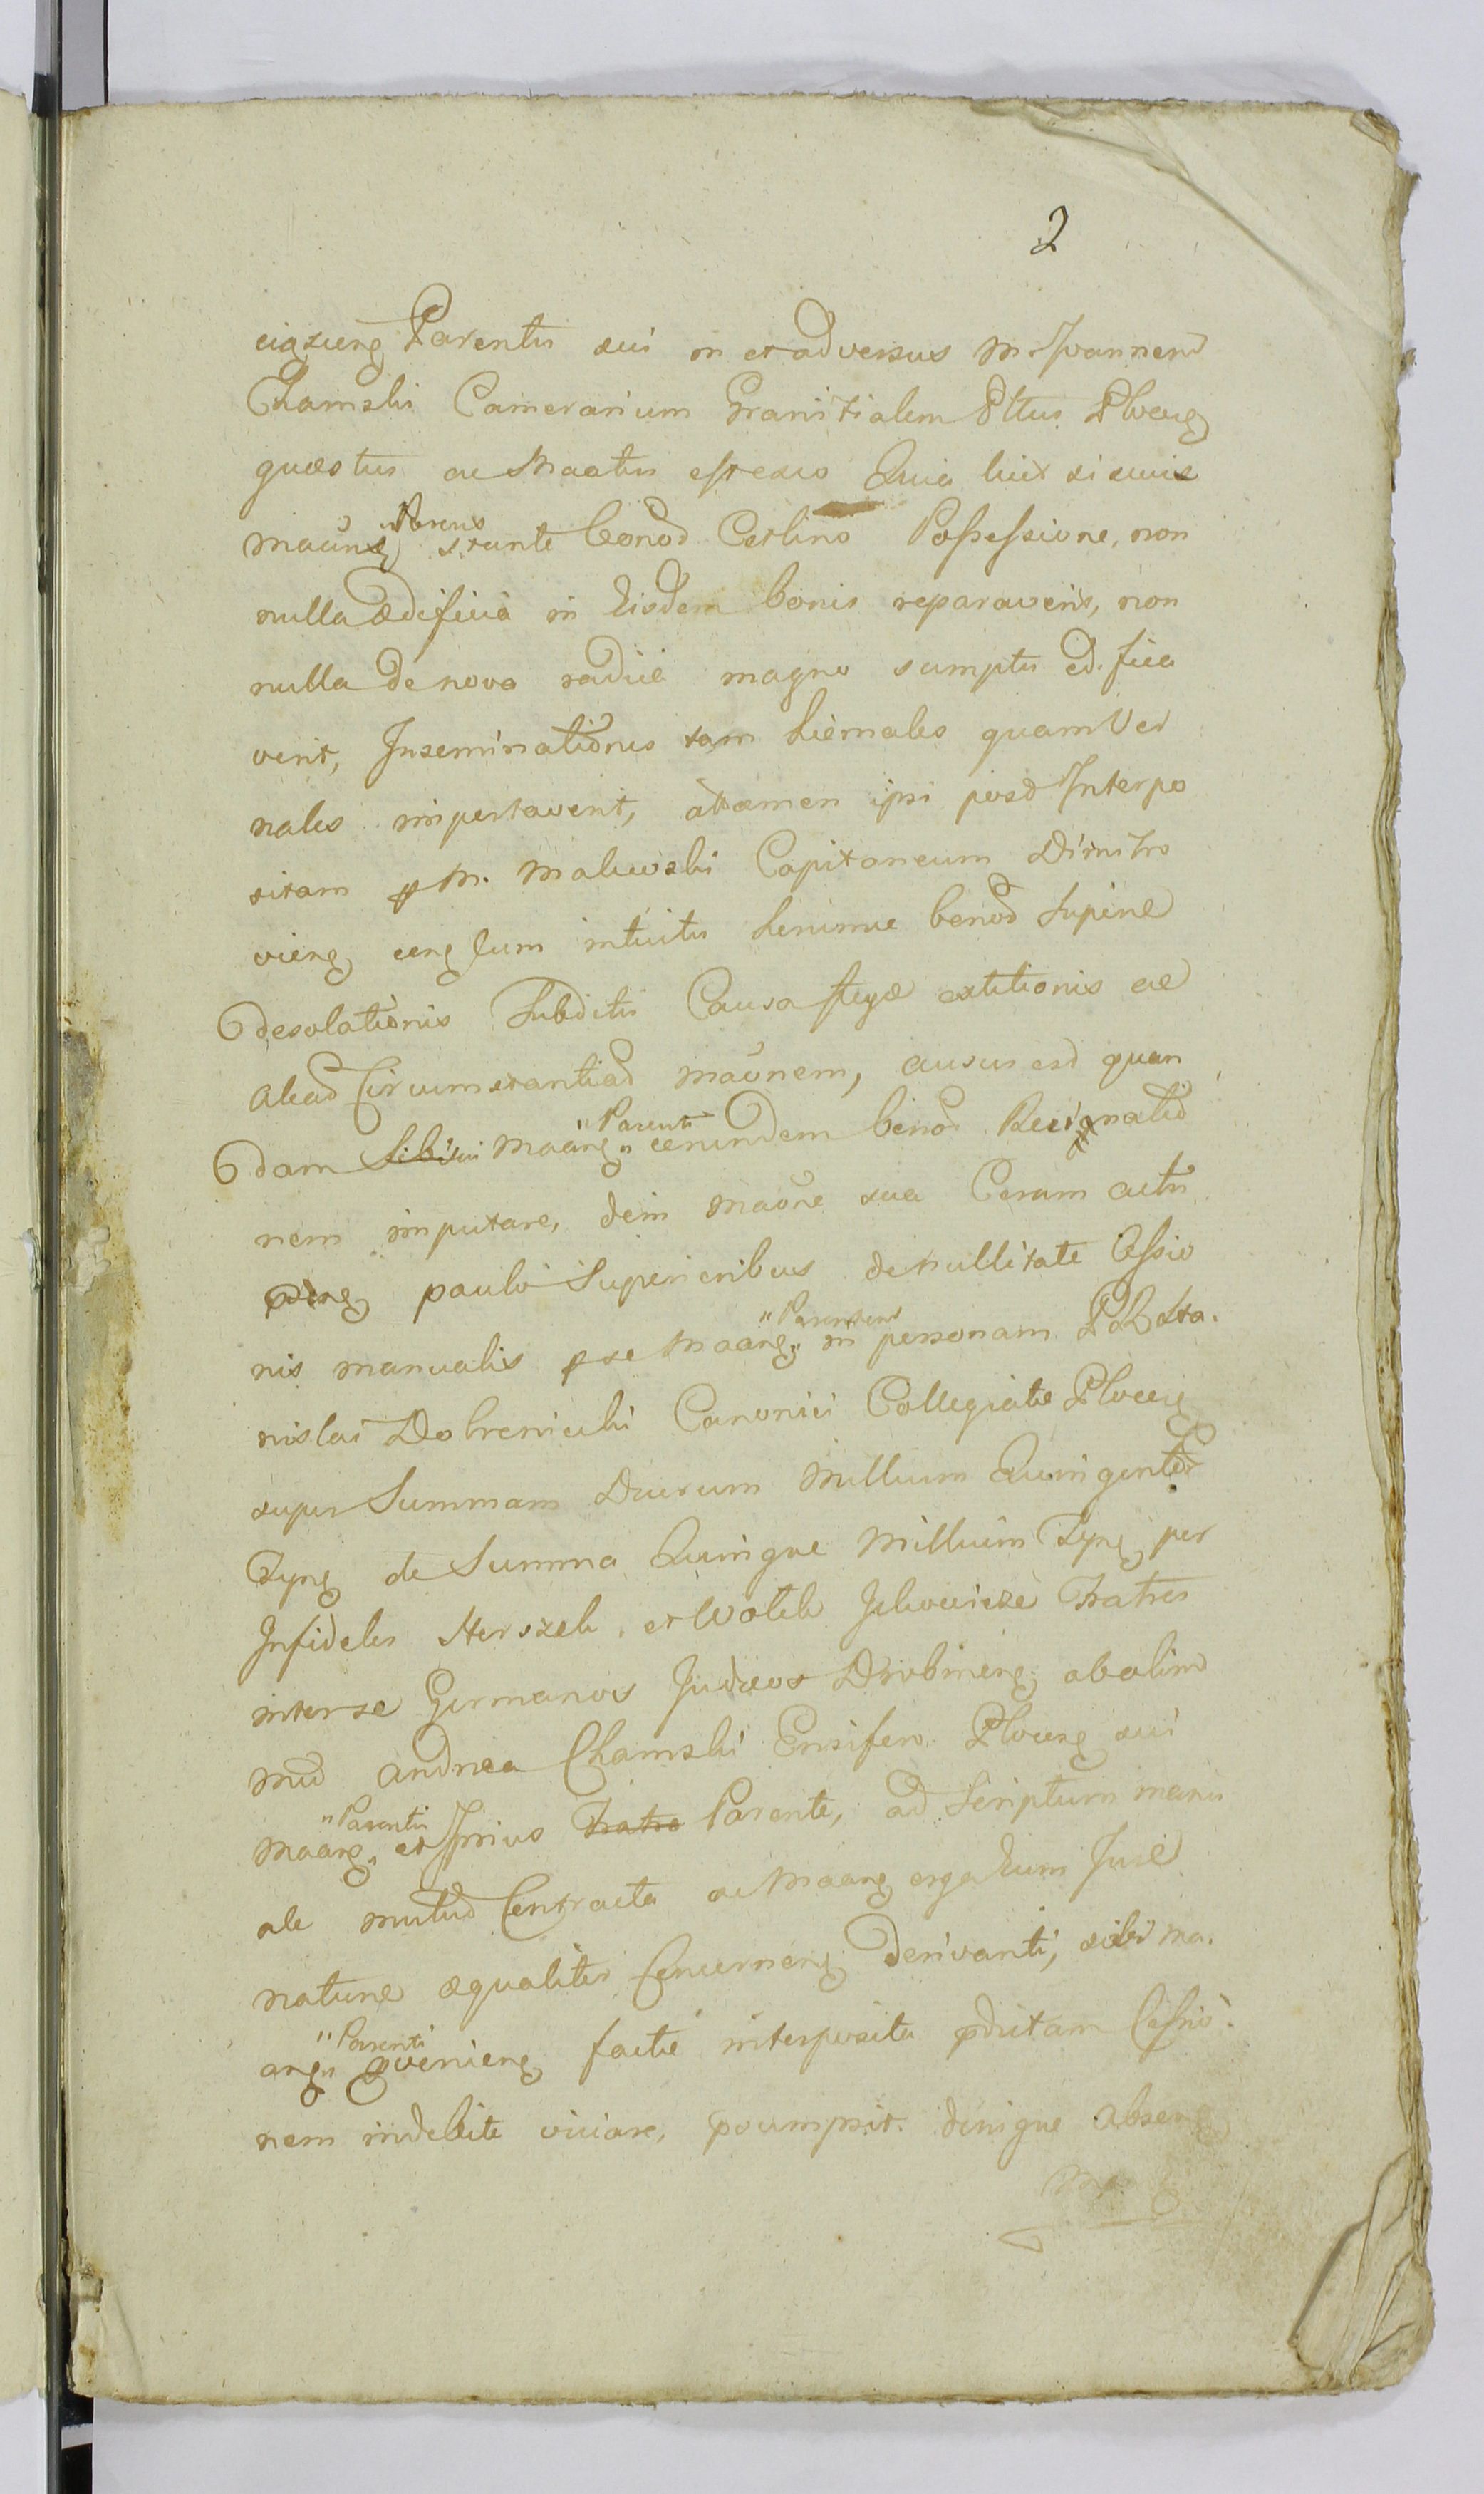 2
eigueng Parentis sui in et adversus M. Joannem
Chamski Camerarium Granitialem Pttus Plocen
quæstus ac Maatus est eo Quia licet si suus
maãns "Parens" stante bonor Cetlino Possessione, non
nulla ædificia in Eisdem bonis reparaverit, non
nulla de nova radice magno sumptu ædifica
verit, Inseminationes tam hiemales quam Ver
nales impertaverit, attamen ipsi post Interpo
sitam p M. Makowski Capitaneum
intuitu bonor Supine
desolationis Subditis Causa ac
aliad Circumstantiad maõnem, ausus est quan
dam Sibi sui Maãng "Parenti" eorundem bonor Resignatio
nem imputare, dein maõne sua Coram actis
pding paulo Superioribus de nullitate Cessio
nis manualis p se Maãng "Parentem" in personam Sta.
nislai Dobrenicki Canonici Collegiatæ Plocen
super Summam Duorum Millium Quingentor
Tyng de Summa Quinque Millium Tyng per
Infideles Herszek et Wolek Jckowicze Fratres
inter se Germanos Judæos Drobineng ab olim
Andrea Chamski Ensifero Plocen sui
Maãng "Parentis" et Ipsius Fratre Parente, ad Scriptum manu
ale mutuo Contracta ac Maãng erga Eum Jure
naturæ æqualiter Concerneng derivanti, sibi ma.
ang "Parenti" pvenieng facte interposita pdictam Cessio.
nem indebite viciare, psumpsit. denique absen